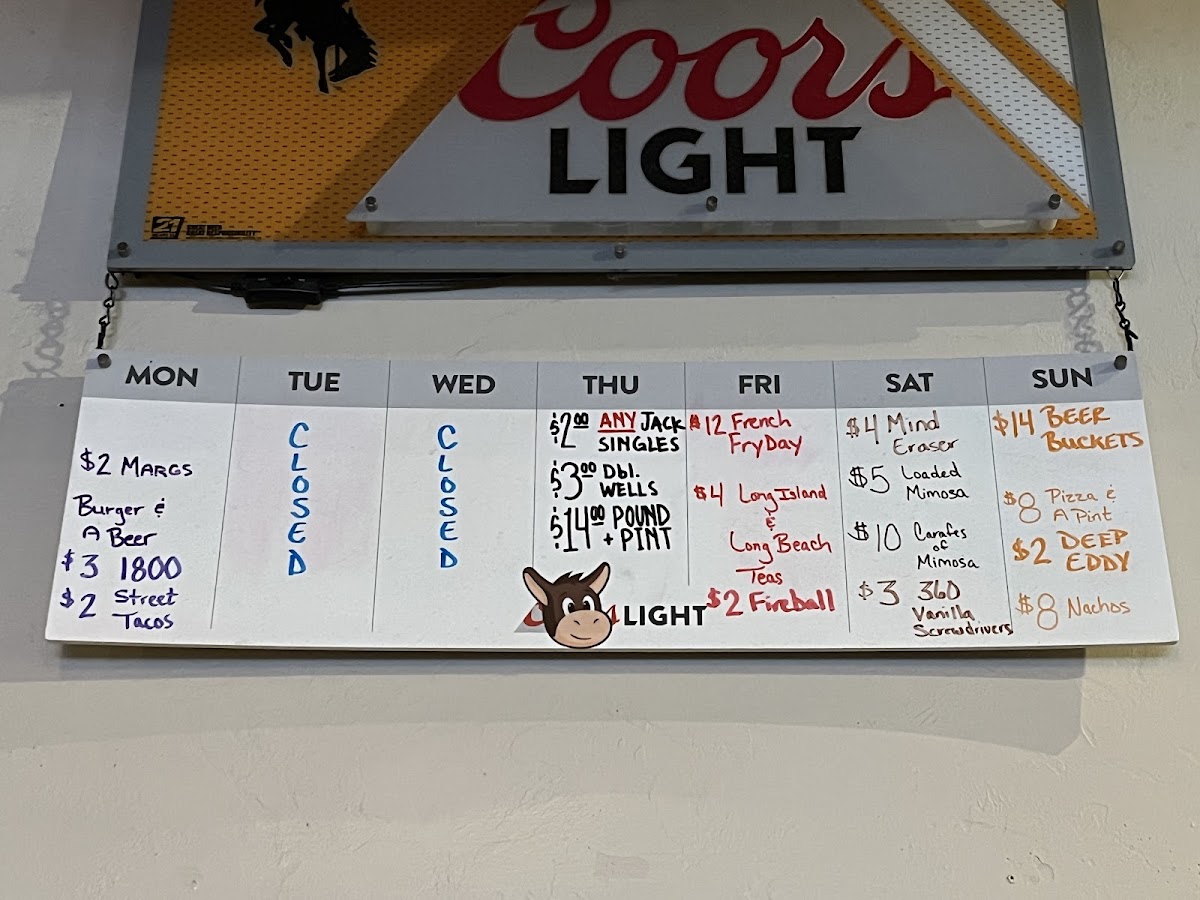 Coors
LIGHT
21
MON
$2 MARGS
Burger &
A Beer
$3 1800
$2 Street
Tacos
TUE
CLOSED
WED
CLOSED
THU
$2.00 ANY JACK
SINGLES
$3.00 Dbl.
WELLS
$14.00 POUND
+ PINT
LIGHT
FRI
$12 French
FryDay
$4 Long Island
&
Long Beach
Teas
$2 Fireball
SAT
$4 Mind
Eraser
$5 Loaded
Mimosa
$10 Carafes
of
Mimosa
$3 360
Vanilla
Screwdrivers
SUN
$14 BEER
BUCKETS
$8 Pizza &
A Pint
$2 DEEP
EDDY
$8 Nachos